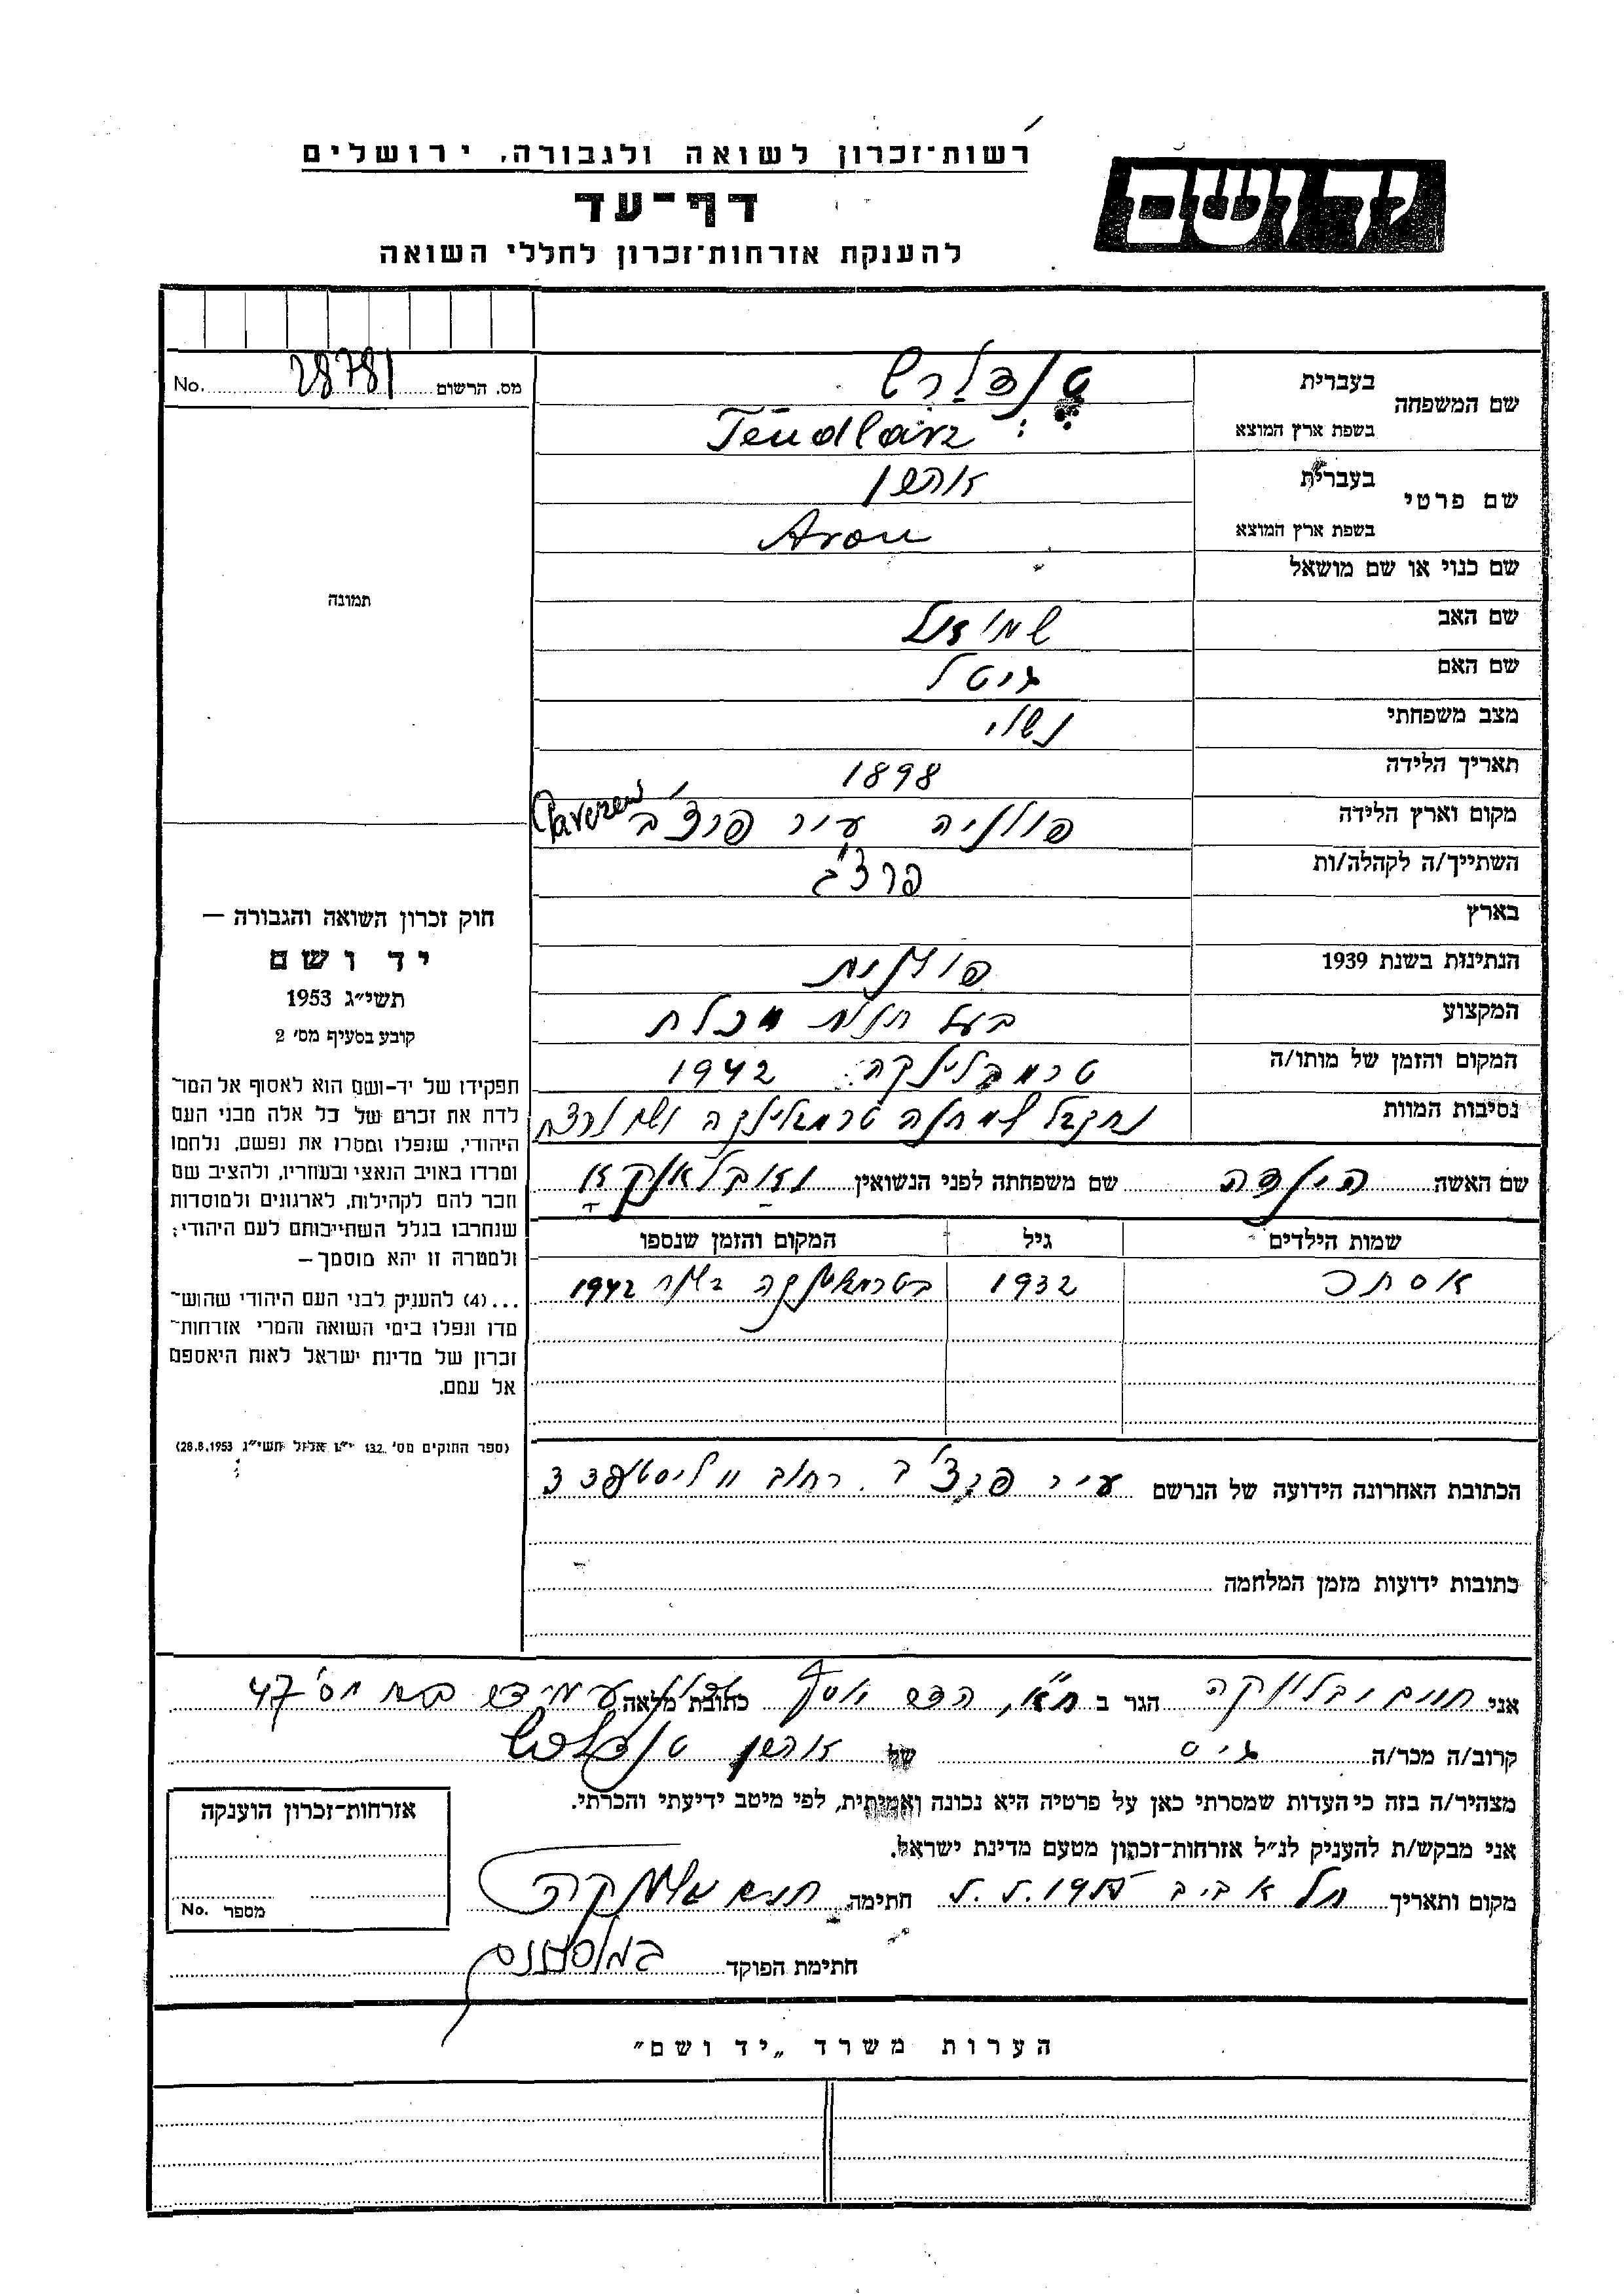 רשות־זכרון לשואה ולגבורה, ירושלים
יד ושם
דף־עד
להענקת אזרחות־זכרון לחללי השואה
שם המשפחה
בעברית
טנדלרש
בשפת ארץ המוצא
Tendlarz
מס. הרשום 28781 No.
שם פרטי
בעברית
אהרון
בשפת ארץ המוצא
Aron
שם כנוי או שם מושאל
תמונה
שם האב שמואל
שם האם גיטל
מצב משפחתי נשוי
תאריך הלידה 1898
מקום וארץ הלידה פולניה עיר פרצ'ב
השתייך/ה לקהלה/ות פרצ'ב
בארץ
הנתינות בשנת 1939 פולנית
המקצוע בעל חנות מכלת
המקום והזמן של מותו/ה טרמבלינקה 1942
נסיבות המוות טרמבלינקה ושם נרצח
שם האשה הינדה שם משפחתה לפני הנשואין
שמות הילדים גיל המקום והזמן שנספו
אסתר 1932 בטרמבלינקה בשנת 1942
הכתובת האחרונה הידועה של הנרשם עיר פרצ'ב רחוב
כתובות ידועות מזמן המלחמה
חוק זכרון השואה והגבורה —
יד ושם
תשי״ג 1953
קובע בסעיף מס׳ 2
תפקידו של יד-ושם הוא לאסוף אל המו־
לדת את זכרם של כל אלה מבני העם
היהודי, שנפלו ומסרו את נפשם, נלחמו
ומרדו באויב הנאצי ובעוזריו, ולהציב שם
וזכר להם לקהילות, לארגונים ולמוסדות
שנחרבו בגלל השתייכותם לעם היהודי;
ולמטרה זו יהא מוסמך—
...(4) להעניק לבני העם היהודי שהוש־
מדו ונפלו בימי השואה והמרי אזרחות־
זכרון של מדינת ישראל לאות היאספם
אל עמם.
(ספר החוקים מס׳ 132 י״ז אלול תשי״ג 28.8.1953)
אני חיים הגר ב ת"א, כתובת מלאה מס' 47
קרוב/ה מכר/ה גיס של אהרון טנדלרש
מצהיר/ה בזה כי העדות שמסרתי כאן על פרטיה היא נכונה ואמיתית, לפי מיטב ידיעתי והכרתי.
אני מבקש/ת להעניק לנ״ל אזרחות־זכרון מטעם מדינת ישראל.
מקום ותאריך תל אביב חתימה
חתימת הפוקד
אזרחות־זכרון הוענקה
מספר No.
הערות משרד „יד ושם״